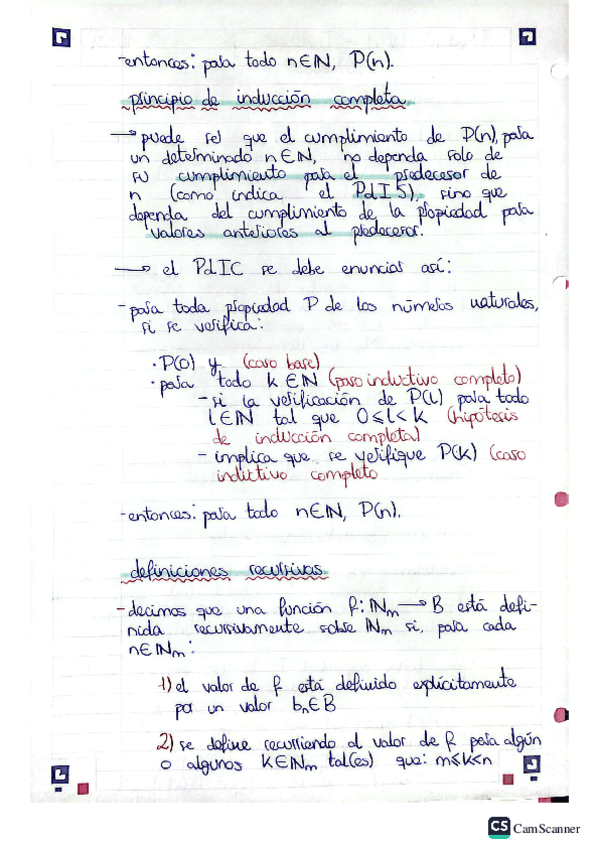 -entonces: para todo n∈ℕ, P(n).
principio de inducción completa
→ puede ser que el cumplimiento de P(n), para
un determinado n∈ℕ, no dependa solo de
su cumplimiento para el predecesor de
n (como indica el PdIS), sino que
dependa del cumplimiento de la propiedad para
valores anteriores al predecesor.
→ el PdIC se debe enunciar así:
-para toda propiedad P de los números naturales,
si se verifica:
·P(0) y (caso base)
·para todo k∈ℕ (paso inductivo completo)
-si la verificación de P(l) para todo
l∈ℕ tal que 0≤l<k (hipótesis
de inducción completa)
- implica que se verifique P(k) (caso
inductivo completo
-entonces: para todo n∈ℕ, P(n).
definiciones recursivas
-decimos que una función f: ℕm → B está defi-
nida recursivamente sobre ℕm si, para cada
n∈ℕm:
1) el valor de f está definido explícitamente
por un valor bn∈B
2) se define recurriendo al valor de f para algún
o algunos k∈ℕm tal(es) que: m≤k<n
CS CamScanner